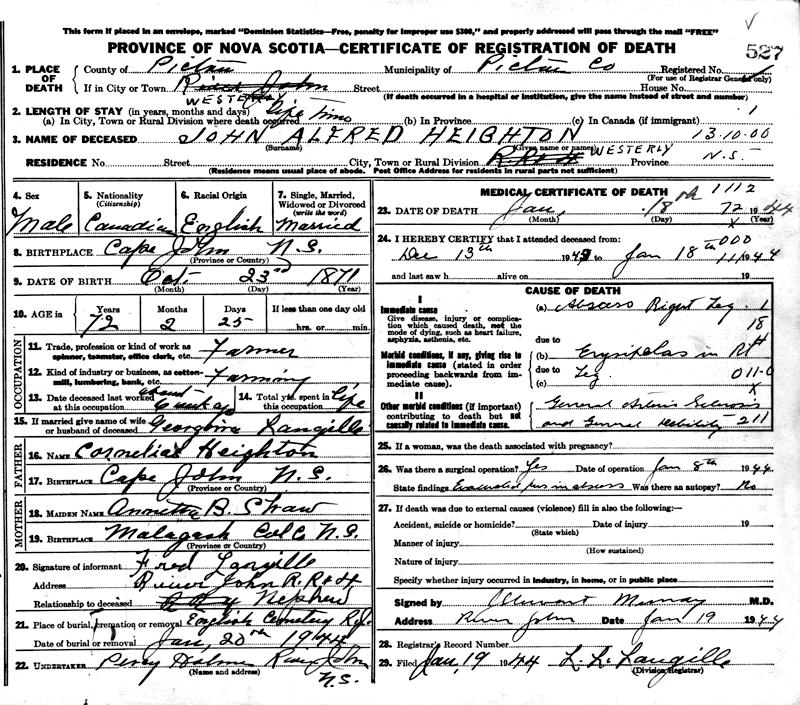 This form if placed in an envelope, marked "Dominion Statistics—Free, penalty for improper use $300," and properly addressed will pass through the mail "FREE"
PROVINCE OF NOVA SCOTIA—CERTIFICATE OF REGISTRATION OF DEATH
527
1. PLACE OF DEATH
County of Pictou Municipality of Pictou Co Registered No.
(For use of Registrar General only)
If in City or Town River John Street House No.
(If death occurred in a hospital or institution, give the name instead of street and number)
WESTERLY
2. LENGTH OF STAY (in years, months and days) life time
(a) In City, Town or Rural Division where death occurred (b) In Province (c) In Canada (if immigrant) 1
3. NAME OF DECEASED JOHN ALFRED HEIGHTON 13.10.00
(Surname) (Given name or names)
RESIDENCE No. Street City, Town or Rural Division WESTERLY Province N.S.
(Residence means usual place of abode. Post Office Address for residents in rural parts not sufficient)
4. Sex Male
5. Nationality (Citizenship) Canadian
6. Racial Origin English
7. Single, Married, Widowed or Divorced (write the word) Married
8. BIRTHPLACE Cape John N.S.
(Province or Country)
9. DATE OF BIRTH Oct. 23rd 1871
(Month) (Day) (Year)
10. AGE in Years Months Days If less than one day old
72 2 25 hrs. or min.
OCCUPATION
11. Trade, profession or kind of work as spinner, teamster, office clerk, etc. Farmer
12. Kind of industry or business, as cotton-mill, lumbering, bank, etc. Farming
13. Date deceased last worked at this occupation
14. Total yrs. spent in this occupation life
15. If married give name of wife or husband of deceased Georgina Langille
FATHER
16. NAME Cornelius Heighton
17. BIRTHPLACE Cape John N.S.
(Province or Country)
MOTHER
18. MAIDEN NAME Annetta B. Shaw
19. BIRTHPLACE Malagash Col C. N.S.
(Province or Country)
20. Signature of informant Fred Langille
Address River John R.R #4
Relationship to deceased Nephew
21. Place of burial, cremation or removal English Cemetery
Date of burial or removal Jan, 20th 1944
22. UNDERTAKER Percy River John N.S.
(Name and address)
MEDICAL CERTIFICATE OF DEATH
1112
23. DATE OF DEATH Jan, 18th 72 1944
(Month) (Day) x (Year)
24. I HEREBY CERTIFY that I attended deceased from: 000
Dec 13th 1943 to Jan 18th 1944
and last saw h alive on 19
CAUSE OF DEATH
I
Immediate cause
Give disease, injury or complication which caused death, not the mode of dying, such as heart failure, asphyxia, asthenia, etc.
(a) Abscess Right Leg 1
18
due to
Morbid conditions, if any, giving rise to immediate cause (stated in order proceeding backwards from immediate cause).
(b) Erysipelas in Rt
due to Leg 011-0
(c) x
II
Other morbid conditions (if important) contributing to death but not causally related to immediate cause.
General Arterio Sclerosis
and General Debility 211
25. If a woman, was the death associated with pregnancy?
26. Was there a surgical operation? Yes Date of operation Jan 8th 1944
State findings Evacuated pus in abscess Was there an autopsy? No
27. If death was due to external causes (violence) fill in also the following:—
Accident, suicide or homicide? Date of injury 19
(State which)
Manner of injury
(How sustained)
Nature of injury
Specify whether injury occurred in industry, in home, or in public place
Signed by Murray M.D.
Address River John Date Jan 19 1944
28. Registrar's Record Number
29. Filed Jan, 19 1944 L. L. Langille
(Division Registrar)